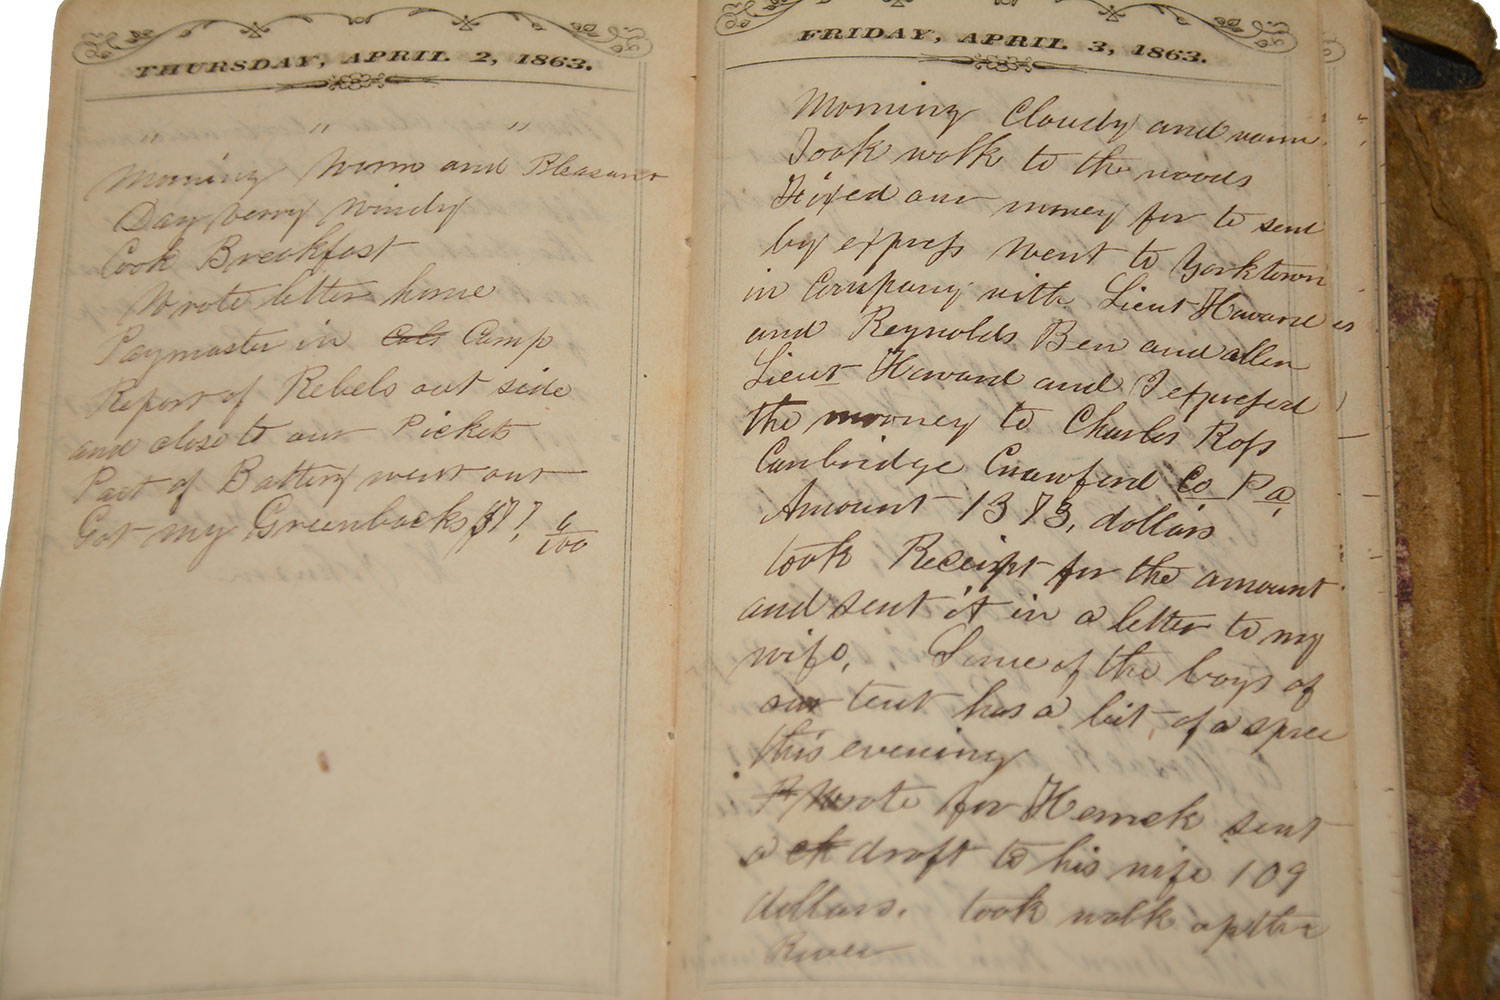 THURSDAY, APRIL 2, 1863.
" " "
Morning Warm and Pleasant
Day very Windy
Cook Breakfast
Wrote letter home
Paymaster in Camp
Report of Rebels out side
and close to our Pickets
Part of Battery went out
Got my Greenbacks
FRIDAY, APRIL 3, 1863.
Morning Cloudy and warm
Took walk to the woods
Fixed our money for to send
by express Went to Yorktown
in Company with Lieut Howard
and Reynolds Ben and allen
Lieut Howard and I expressed
the mooney to Charles Ross
Cambridge Crawford Co Pa,
Amount 1373, dollars
took Receipt for the amount
and sent it in a letter to my
wife, Some of the boys of
our tent has a bit of a spree
this evening
Wrote for sent
a draft to his wife 109
dollars. took walk up the
River